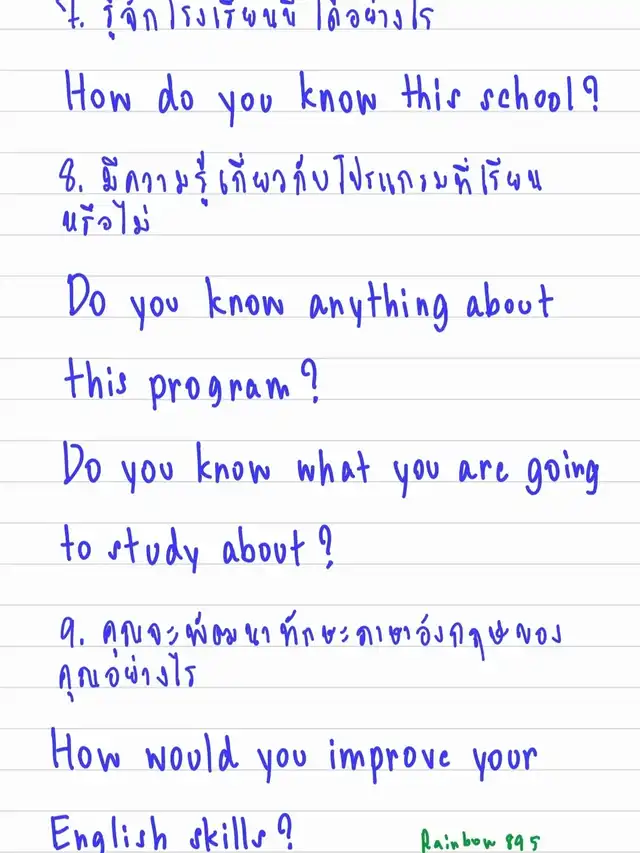 7. รู้จักโรงเรียนนี้ได้อย่างไร
How do you know this school?
8. มีความรู้เกี่ยวกับโปรแกรมที่เรียน
หรือไม่
Do you know anything about
this program?
Do you know what you are going
to study about?
9. คุณจะพัฒนาทักษะภาษาอังกฤษของ
คุณอย่างไร
How would you improve your
English skills?
Rainbow 895